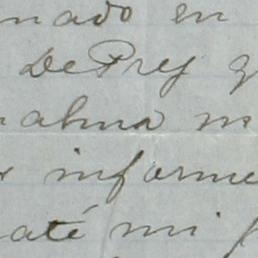 nado en
DePrey q
alma m
informe
até mi f